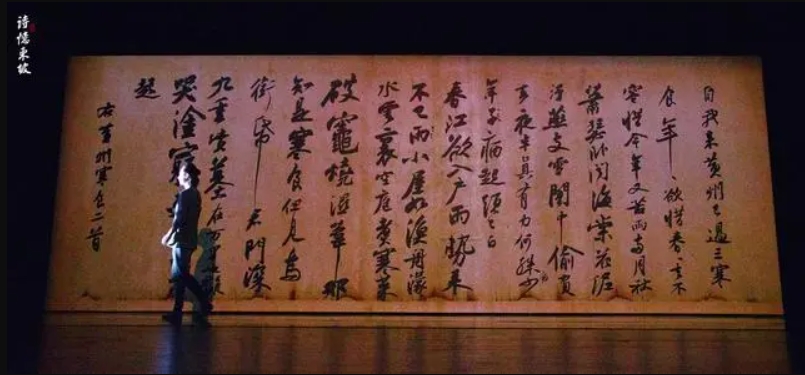 詩憶東坡
自我來黃州已過三寒
食年〻欲惜春〻去不
容惜今年又苦雨兩月秋
蕭瑟臥聞海棠花泥
污燕支雪闇中偷負
去夜半真有力何殊少
年子病起頭已白
春江欲入戶雨勢來
不已雨小屋如漁舟濛〻
水雲裏空庖煮寒菜
破竈燒濕葦那
知是寒食但見烏
銜帋君門深
九重墳墓在万里也擬
哭塗窮
起
右黃州寒食二首